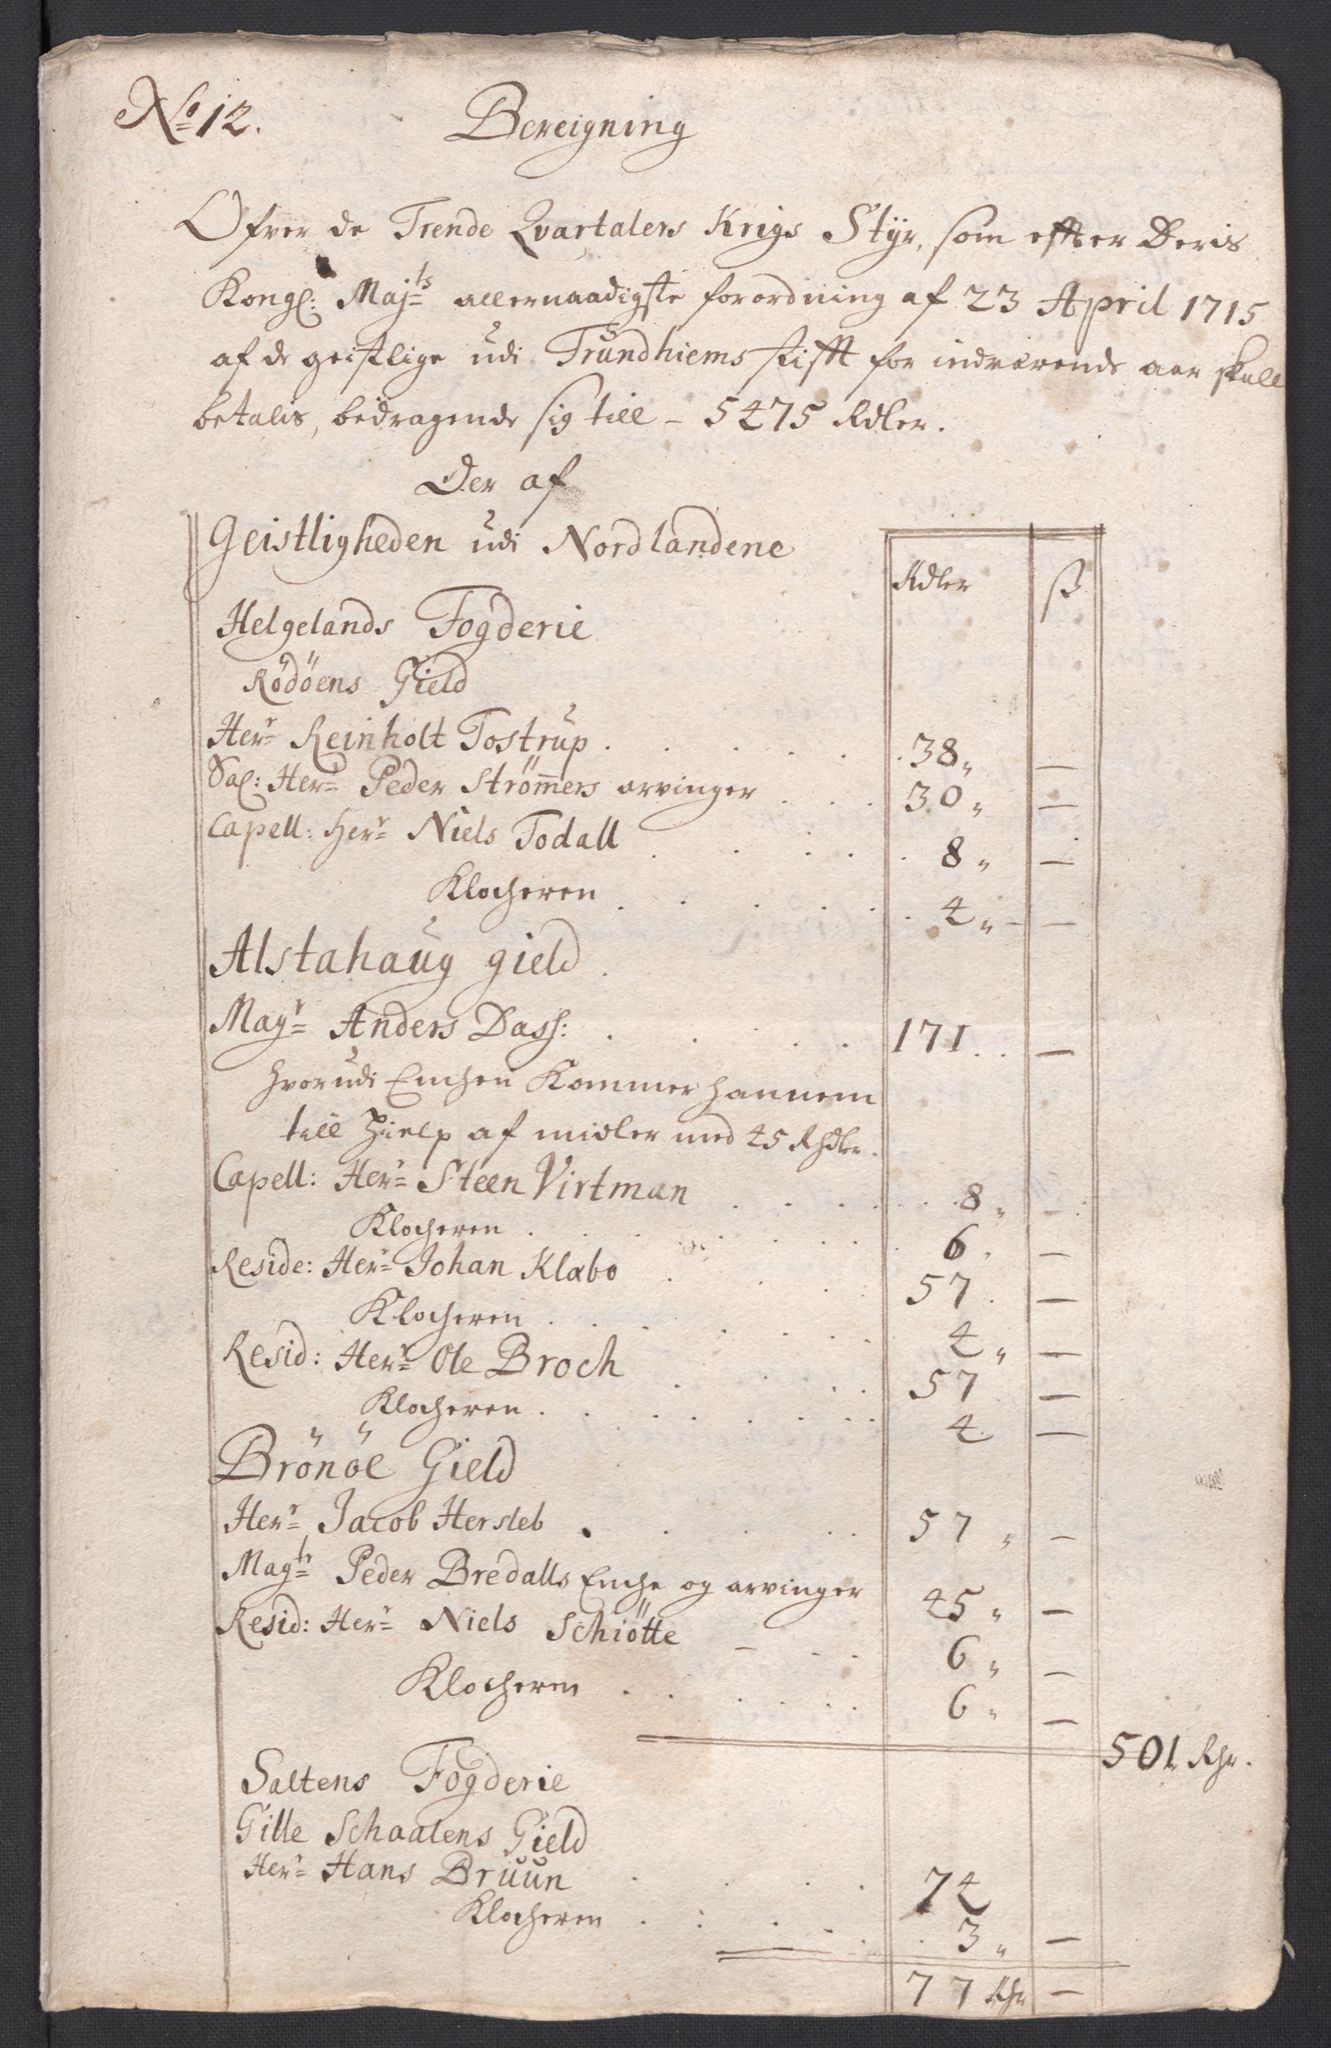 No 12. Bereigning
Ofver de Trende Qvartalers Krigs Styr, som effter Deris
Kongl: Majts allernaadigste forordning af 23 April 1715
af de geistlige udi Trundhiems stifft for indværende aar skall
betalis, bedragende sig till - 5475 Rdler.
Der af
Geistligheden udi Nordlandene
Rdler ß
Helgelands Fogderie
Rödöens Gield
Herr Reinholt Tostrup . . . . . 38 " —
Sal: Herr Peder Strömers arvinger . . . 30 " —
Capell: Herr Niels Todall . . . . . 8 " —
Klocheren . . . . . 4 " —
Alstahaug gield .
Magr Anders Dass: . . . . 171 . . —
hvorudi Enchen Kommer hannem
till hielp af midler med 45 Rhdler.
Capell: Herr Steen Virtman . . . . 8 " —
Klocheren . . . . . 6 . —
Reside: Herr Johan Klabo . . . 57 . —
Klocheren . . . . . 4 " —
Resid: Herr Ole Broch . . . 57 —
Klocheren . . . . . 4 . —
Brönöe Gield
Herr Jacob Hersleb . . . . . 57 " —
Magts Peder Bredalls Enche og arvinger 45 " —
Resid: Herr Niels Schiötte — . . 6 " —
Klocheren . . . . . 6 " —
501 Rhr.
Saltens Fogderie
Gille Schaalens Gield
Herr Hans Bruun . . . . 74
Klocheren . . . . . 3 " —
77 Rhr —